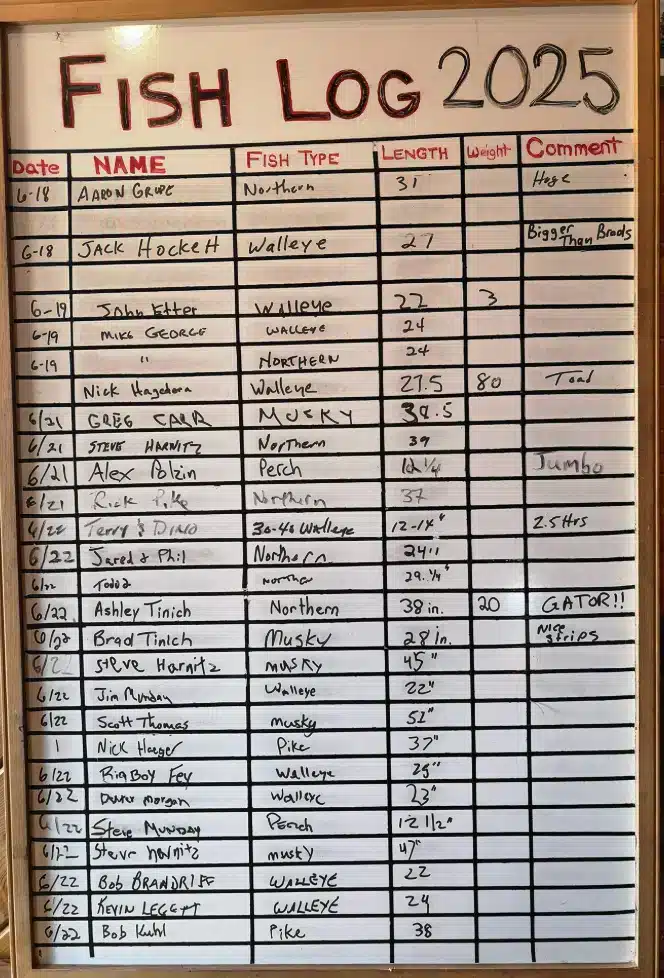 FISH LOG 2025
Date NAME FISH TYPE LENGTH Weight Comment
6-18 AARON GRUPE Northern 31 Huge
6-18 JACK HOCKETT Walleye 27 Bigger Than Brads
6-19 John Etter Walleye 22 3
6-19 MIKE GEORGE WALLEYE 24
6-19 " NORTHERN 24
Nick Walleye 27.5 80 Toad
6/21 GREG CARR MUSKY .5
6/21 STEVE HARNITZ Northern 39
6/21 Alex Polzin Perch 12 1/4 Jumbo
6/21 Rick Pike Northern 37
6/22 Terry & DINO 30-40 Walleye 12-14" 2.5 Hrs
6/22 Jared & Phil Northern 24"
6/22 Todd 29.1/4"
6/22 Ashley Tinich Northern 38 in. 20 GATOR!!
6/22 Brad Tinich Musky 28 in. Nice strips
6/22 Steve Harnitz musky 45"
6/22 Jim Munday Walleye 22"
6/22 Scott Thomas musky 51"
1 Nick Pike 37"
6/22 Big Boy Fey Walleye 25"
6/22 morgan Walleye 23"
6/22 Steve MUNDAY Perch 12 1/2"
6/22 Steve harnitz musky 47"
6/22 Bob BRANDRIFF WALLEYE 22
6/22 KEVIN LEGGETT WALLEYE 24
6/22 Bob Kuhl Pike 38